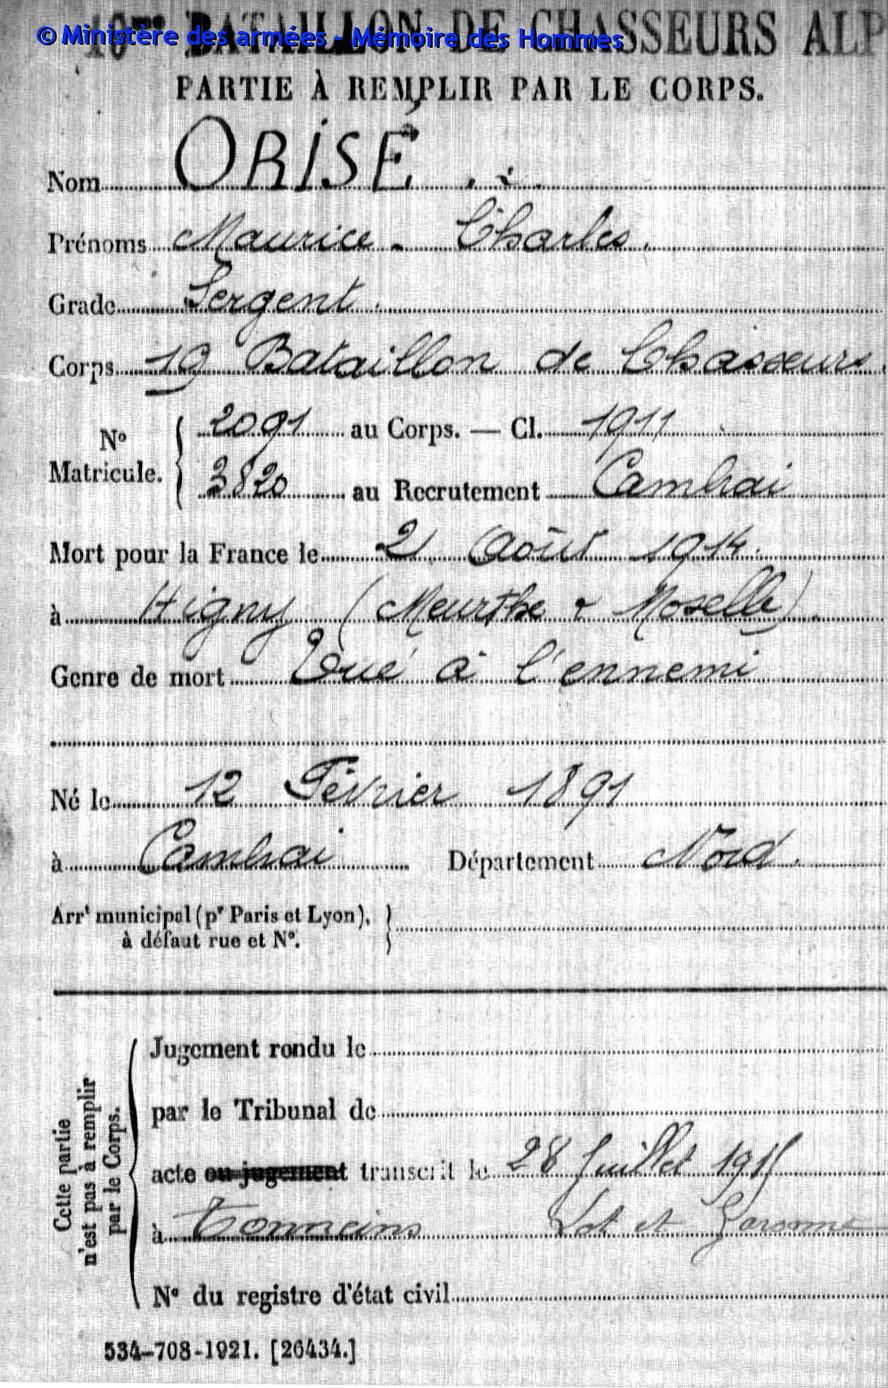 © Ministère des armées - Mémoire des Hommes
BATAILLON DE CHASSEURS ALP
PARTIE À REMPLIR PAR LE CORPS.
Nom ORISÉ
Prénoms Maurice - Charles.
Grade Sergent.
Corps 19 Bataillon de Chasseurs.
N° Matricule. { 2091 au Corps. — Cl. 1911
3820 au Recrutement Cambrai
Mort pour la France le 21 Août 1914.
à Higny (Meurthe & Moselle).
Genre de mort Tué à l'ennemi
Né le 12 Février 1891
à Cambrai Département Nord.
Arrt municipal (pr Paris et Lyon), }
à défaut rue et N°.
Cette partie n'est pas à remplir par le Corps.
Jugement rendu le
par le Tribunal de
acte ou jugement transcrit le 28 Juillet 1915
à Tonneins Lot et Garonne
N° du registre d'état civil
534-708-1921. [26434.]